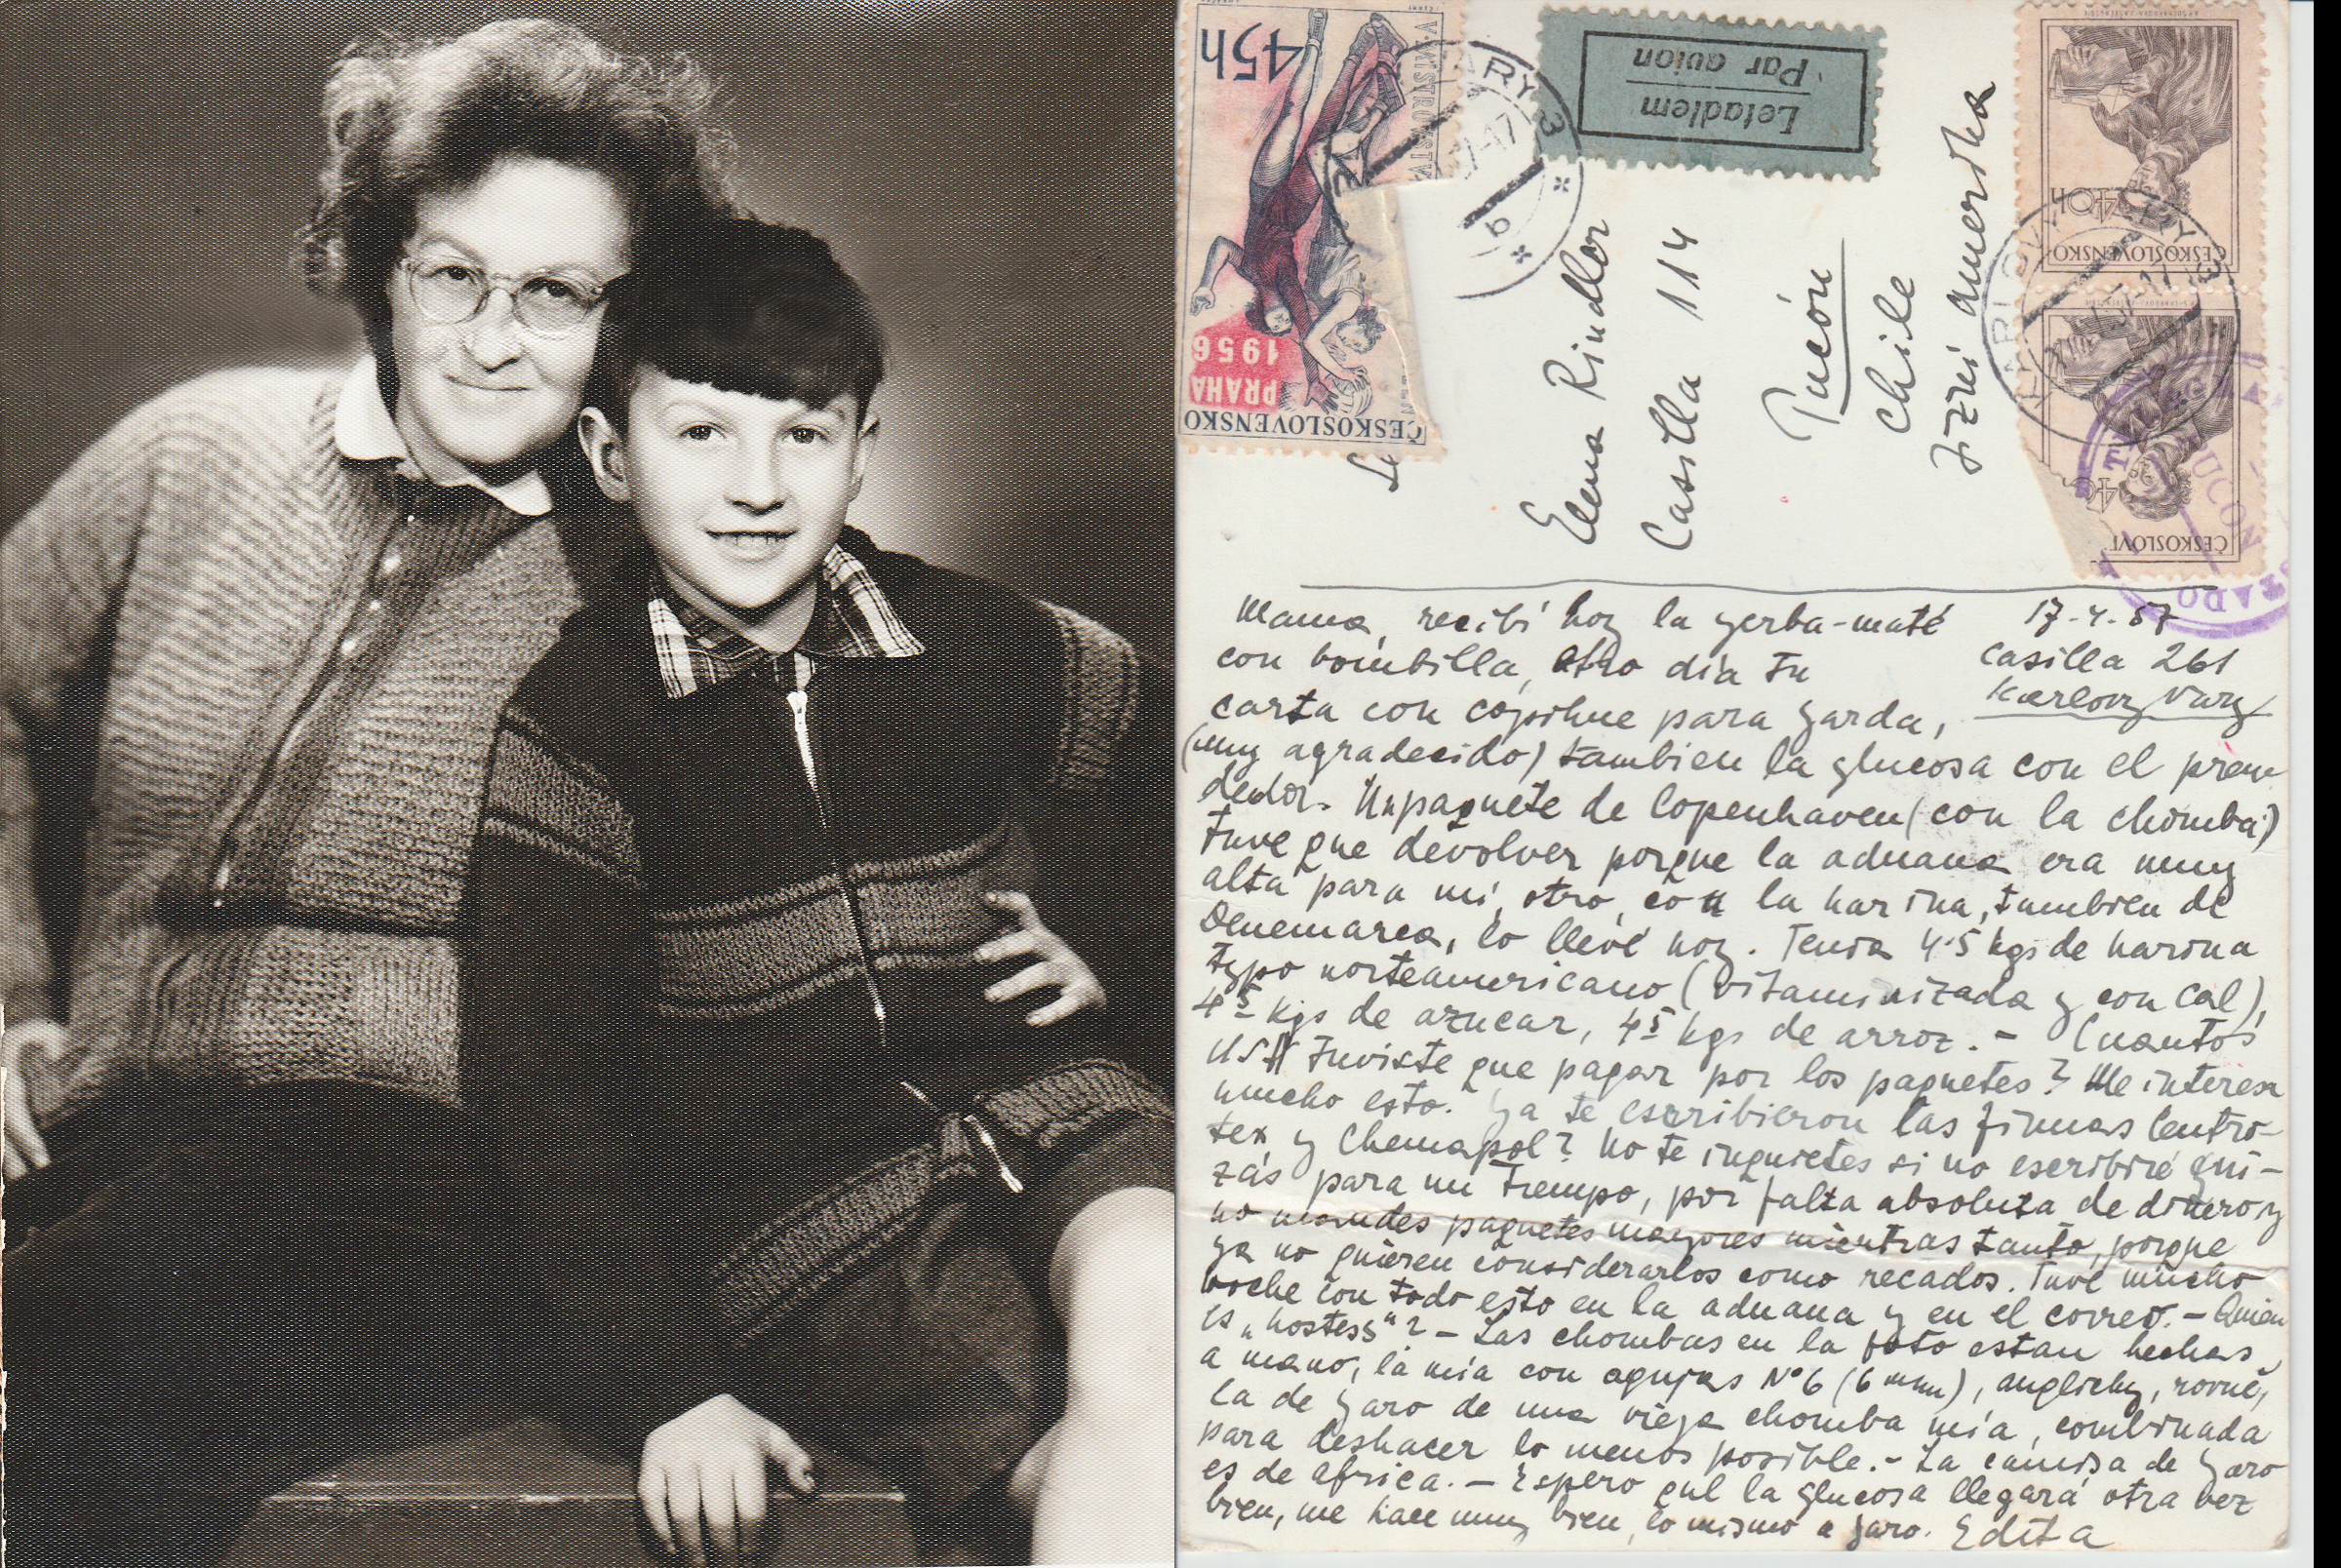 45h
V. MISTROVSTV
PRAHA
1956
ČESKOSLOVENSKO
Letadlem
Par avion
ARY 3
b
40h
ČESKOSLOVENSKO
KARLOVY VARY 3
ČESKOSLOV
Elena Rindler
Casilla 114
Pucón
Chile
Jižní Amerika
Mama, recibí hoy la yerba-maté
17-4-57
con bombilla, otro día tu
casilla 261
Karlovy Vary
carta con copihue para Jarda,
(muy agradecido) tambien la glucosa con el pren-
dedor. Un paquete de Copenhaven (con la chomba)
tuve que devolver porque la aduana era muy
alta para mí, otro, con la harina, tambien de
Denemarca, lo llevé hoy. Tenia 4.5 kgs de harina
typo norteamericano (vitaminizada y con cal),
4.5 kgs de azucar, 4.5 kgs de arroz. - Cuantos
US$ tuviste que pagar por los paquetes? Me interesa
mucho esto. Ya te escribieron las firmas Centro-
tex y Chemapol? No te inquietes si no escribiré qui-
zás para un tiempo, por falta absoluta de dinero y
no mandes paquetes mayores mientras tanto, porque
ya no quieren considerarlos como recados. Tuve mucho
boche con todo esto en la aduana y en el correo. - Quien
es "hostess"? - Las chombas en la foto estan hechas
a mano, la mía con agujas N°6 (6 mm), anglicky, rovně,
la de Jaro de una vieja chomba mía, combinada
para deshacer lo menos posible. - La camisa de Jaro
es de africa. - Espero que la glucosa llegará otra vez
bien, me hace muy bien, lo mismo a Jaro. Edita